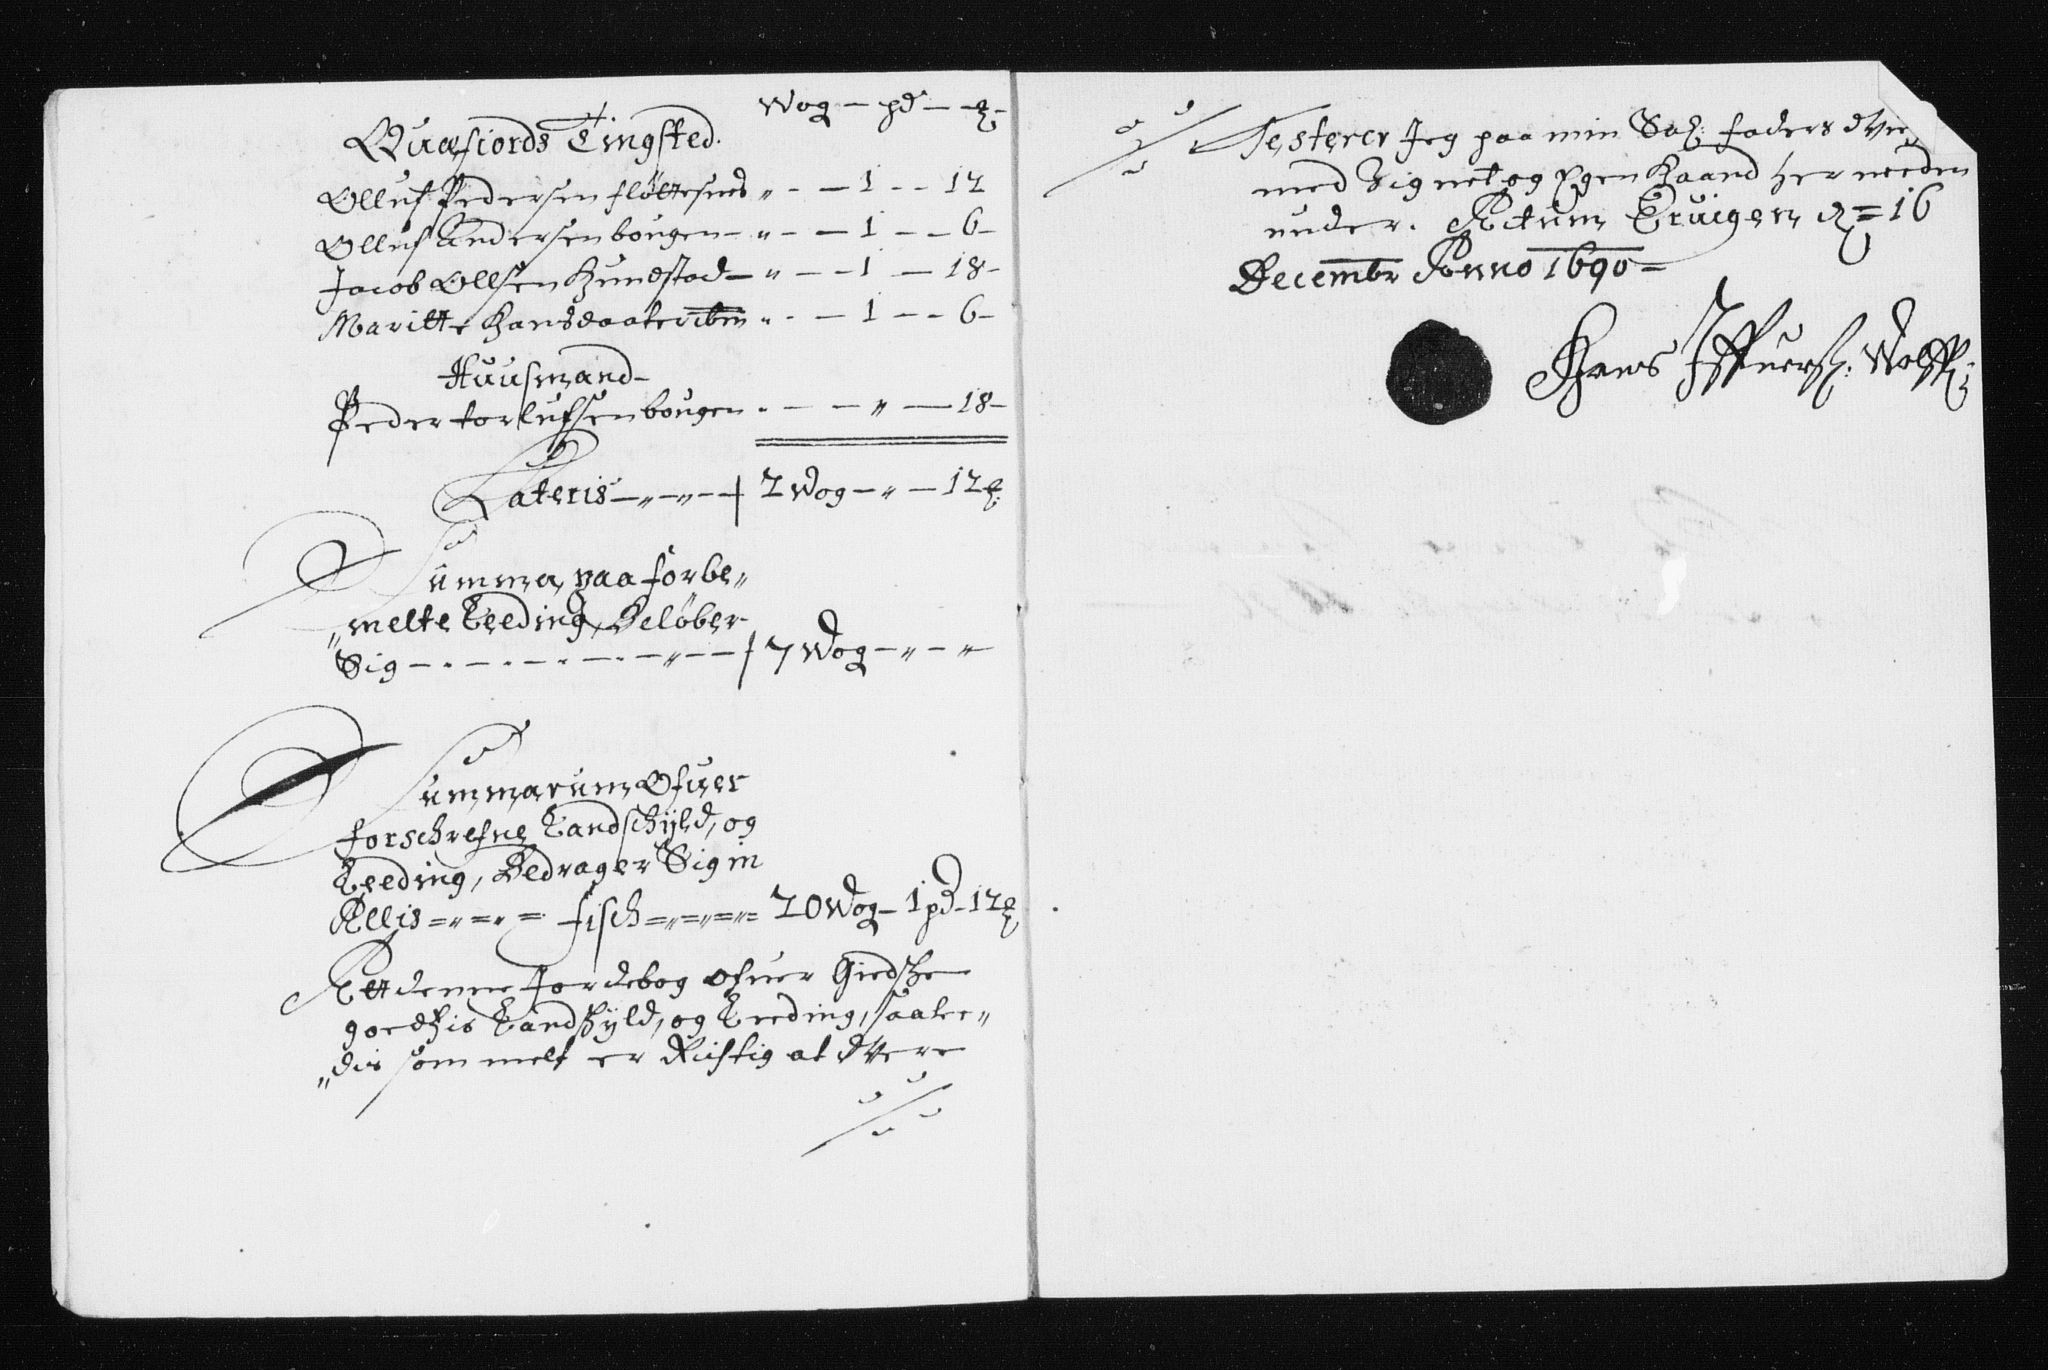 Wog — pd — ℔
Quæfiords Tingsted.
Olluf Pedersen fløttesnes „ - - — 1 - - 12
Olluf Andersen bougen — „ - — 1 - — 6 —
Jacob Ollsen Hundstad — „ - — 1 — 18 —
Maritte Hansdaater ibm „ - — 1 - — 6 —
Huusmand —
Peder torlufsen bougen - - — „ — 18 —
Lateris — „ — „ — 2 Wog — „ — 12 ℔.
Summa paa forbe„
„melte Leeding, Beløber
Sig — - — - — - — „ — 7 Wog — „ — „
Summarum Ofuer
forschrefne Landschÿld, og
Leeding, Bedrager Sig in
Allis = „ = „ = fisch = „ = „ = „ = 20 Wog — 1 pd — 12 ℔
Att denne Jordebog ofuer Giedske
goedtzis Landskÿld, og Leeding, saalee„
„dis som melt er Rictig at Være
Testerer Jeg paa min Sal: faders
med Signet og Egen Haand her neden
under. Actum d = 16
Decembr Anno 1690 —
Hans Iffuers: Wolff